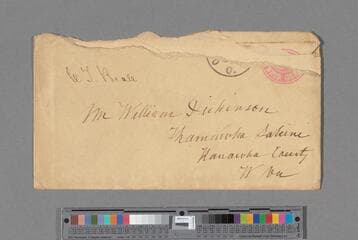 Mr William Dickinson
Kanawha Saline
Kanawha County
W Va